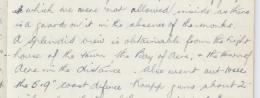 which we were not allowed inside as there
is a guard on it in the absence of the monks.
A splendid view is obtainable from the light
house of the town the Bay of Acre, & the town of
Acre in the distance. Also went out &
the 5.9" coast defence Krupp guns about 2